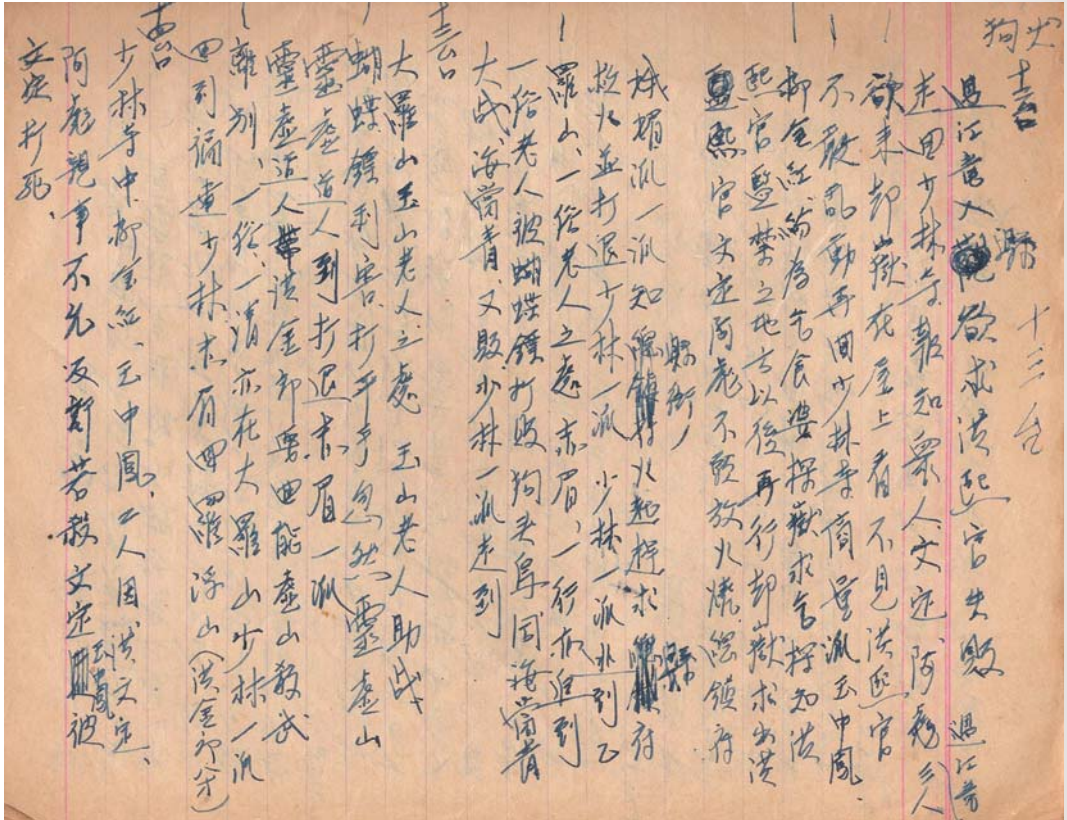 十三台
過江
過江 入 欲求洪熙官失敗
走回少林寺報知眾人文定、阿彪三人
欲来却嶽在屋上看不見洪熙官
不敢乱動再回少林寺商量派玉中鳳、
柳金紅、 為乞食婆探嶽求乞探知洪
熙官監禁之地方以後再行却嶽求出洪
熙官文定阿彪不願放火燒 鎮府
峨媚派一派知 火起趕求 府
救火並打退少林一派少林一派亦到乙
羅山、一俗老人之處赤眉、一行亦追到
一俗老人被蝴蝶鏢打敗狗头阜回海當青
大战、海當青又敗少林一派走到
十三台
大羅山玉山老人之處玉山老人助战
蝴蝶鏢利害打平手忽然靈虛山
靈虛道人到打退赤眉一派
靈虛道人帶洪金郎要回能虛山教武
離別、一俗、一清亦在大羅山少林一派
回到福建少林赤眉回四羅浮山(洪金郎)
十四台
少林寺中柳金紅、玉中鳳、二人因洪文定、
阿彪親事不允反對若殺文定 被
文定打死、